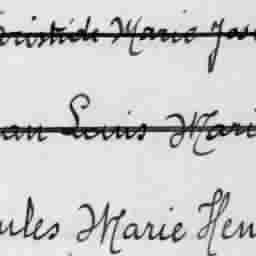 Aristide Marie Jose
ean Louis Mari
ules Marie Hen